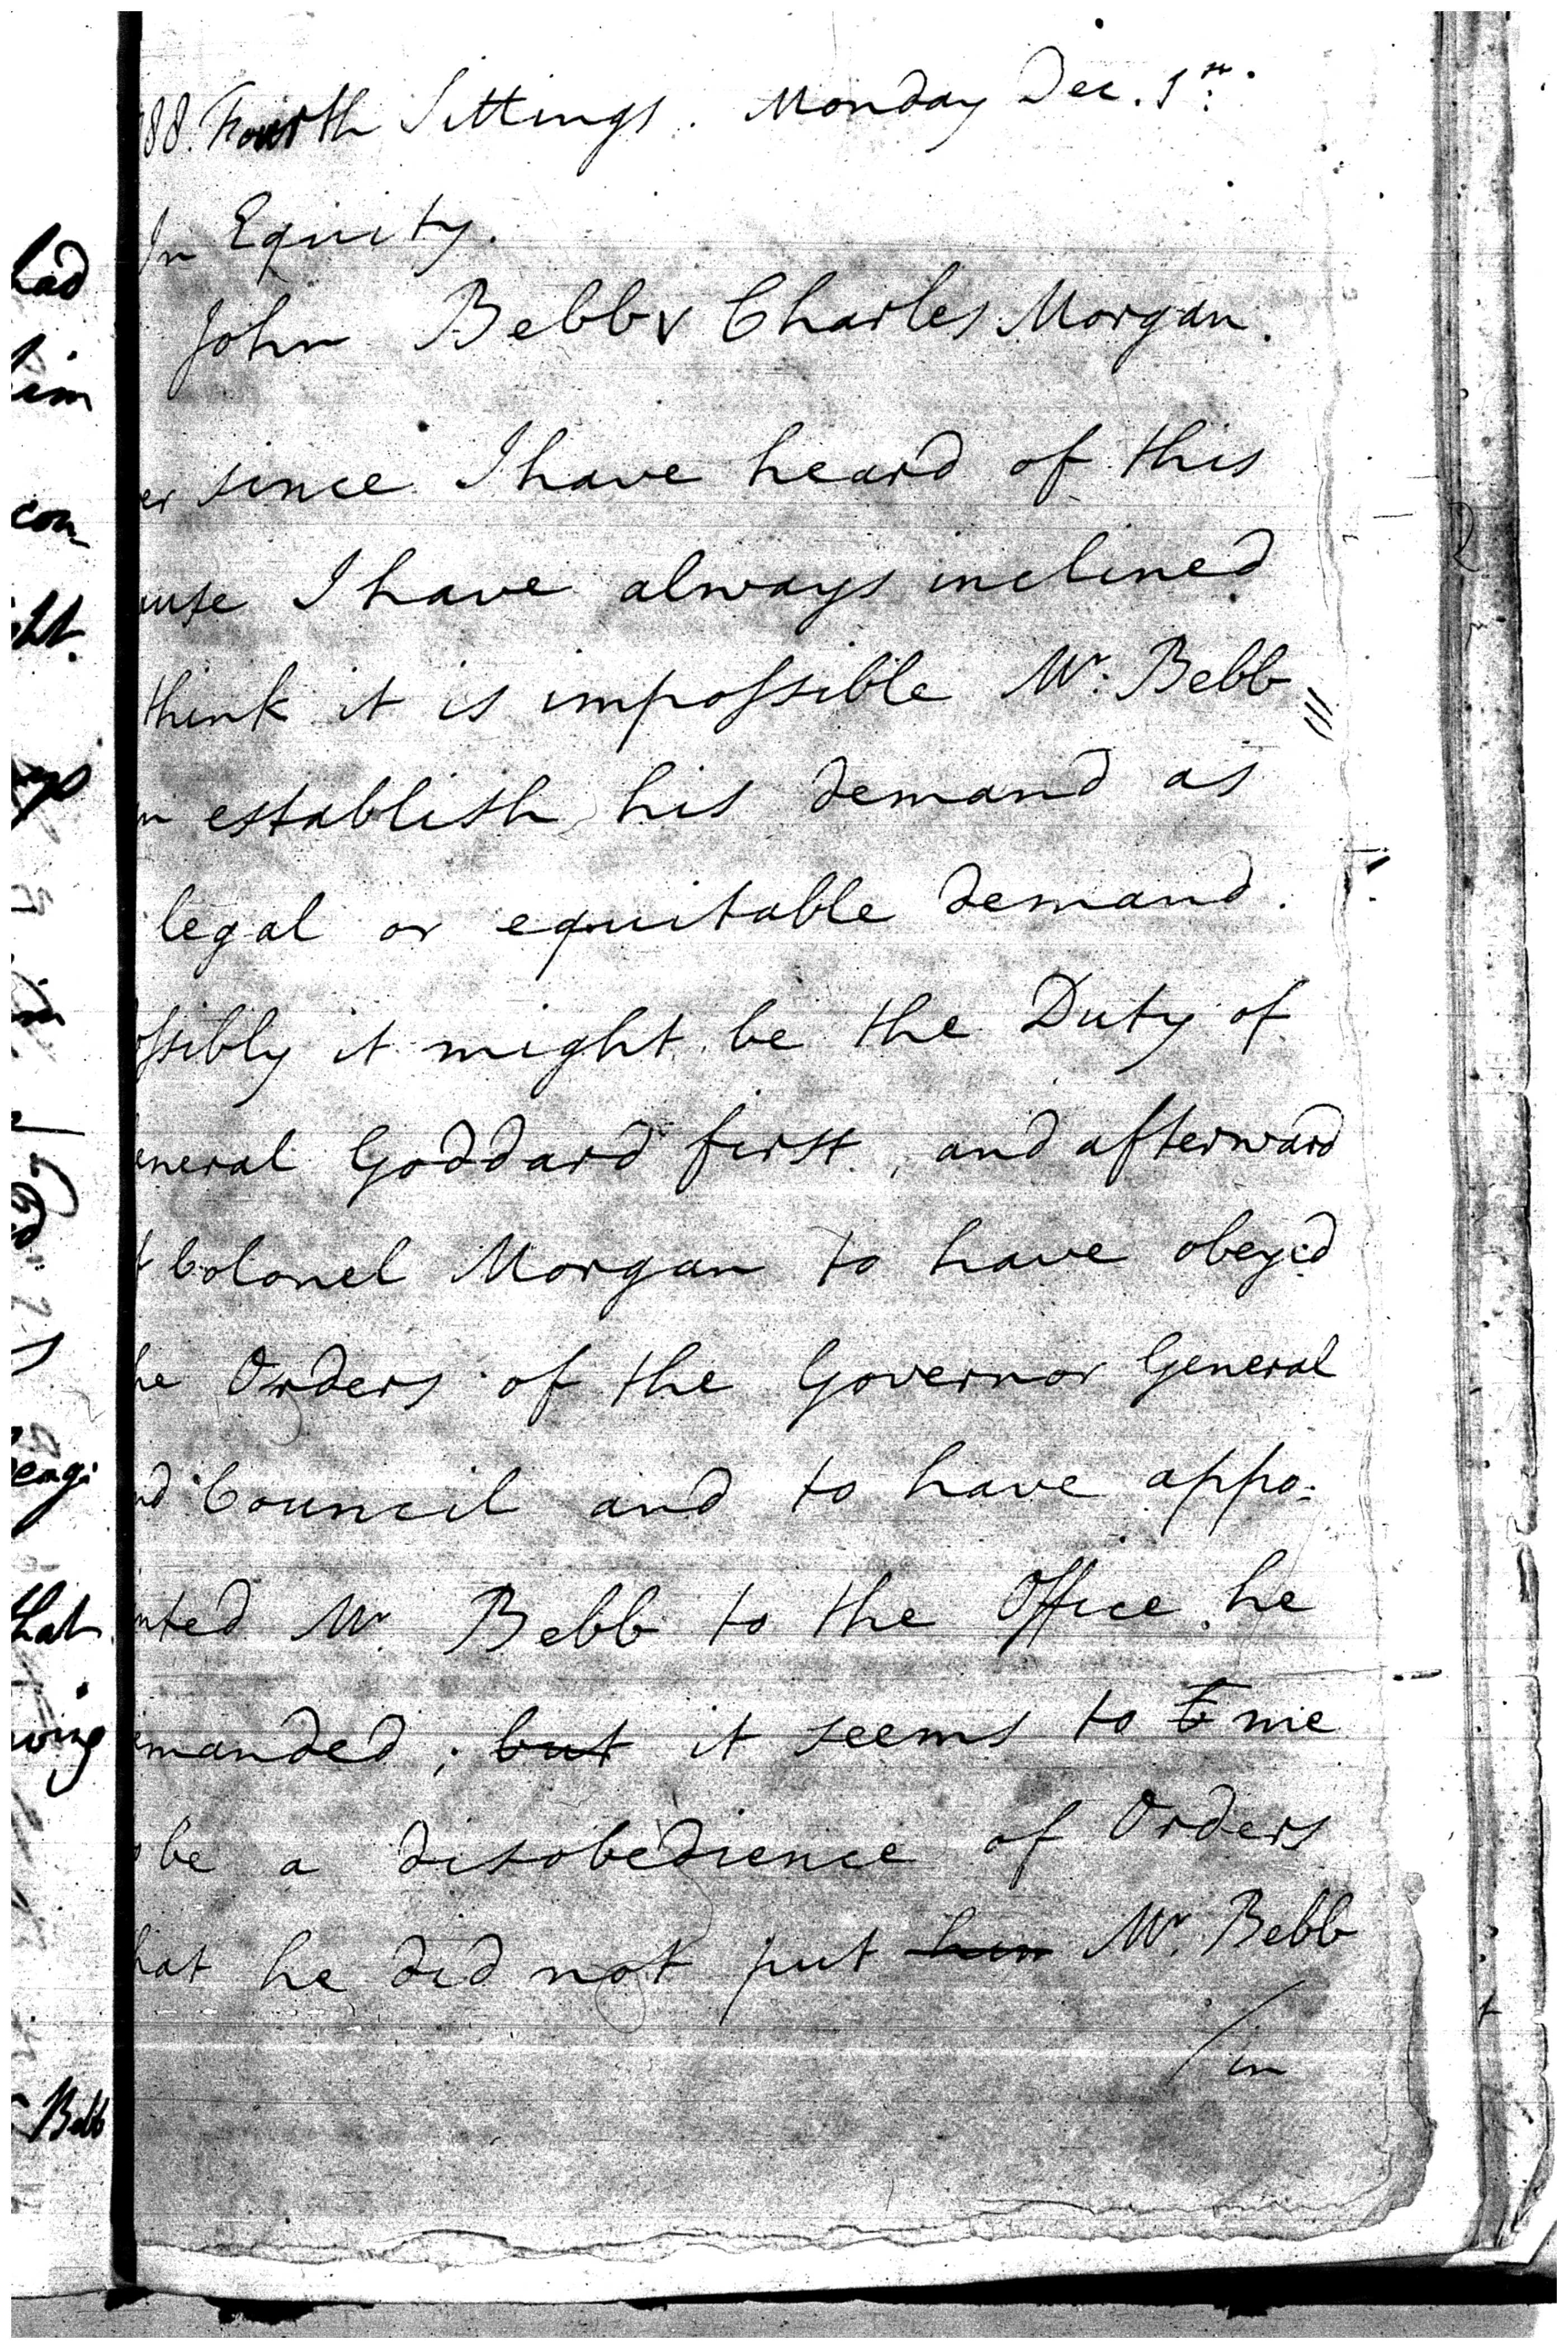 88. Fourth Sittings. Monday Dec. 1st.
In Equity.
John Bebb v Charles Morgan.
er since I have heard of this
ause I have always inclined
think it is impossible Mr. Bebb
n establish his demand as
legal or equitable demand.
ossibly it might be the Duty of
eneral Goddard first, and afterward
t Colonel Morgan to have obeyed
he Orders of the Governor General
nd Council and to have appo:
nted Mr. Bebb to the Office he
manded; but it seems to me
be a disobedience of Orders
hat he did not put him Mr. Bebb
/in
had
him
con
ght.
that
wing
Bebb